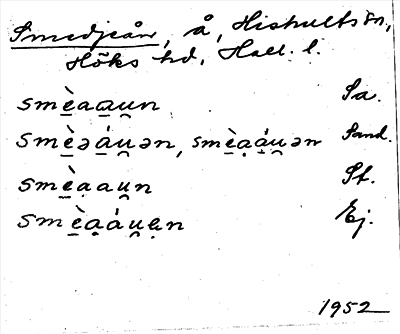 Smedjeån, å, Hishults sn,
Höks hd, Hall. l.
smè̱aa̱u̱n Sa.
smè̱əá̱u̯ən, smè̱ạạ́u̯ən Sand.
smè̱ạau̯n St.
smè̱ạáu̯ẹn Ej.
1952